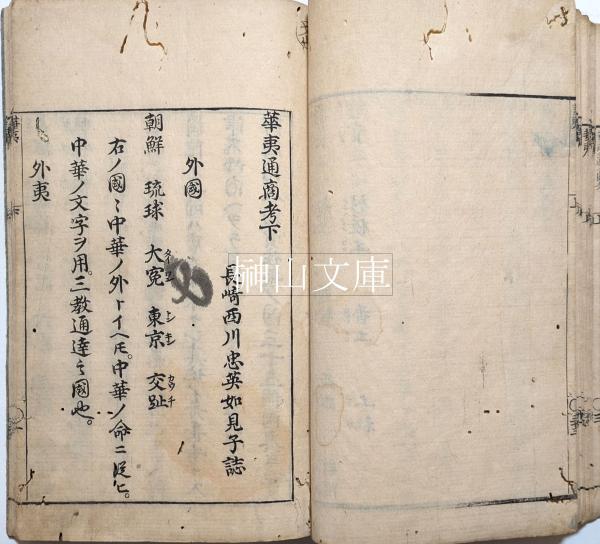 華夷通商考下
長崎西川忠英如見子誌
外國
朝鮮 琉球 大寃 東京 交趾
タイワン トンキン カウチ
右ノ國〻中華ノ外トイヘ𪜈。中華ノ命ニ從ヒ。
中華ノ文字ヲ用。三教通達之國也。
外夷
榊山文庫
華夷